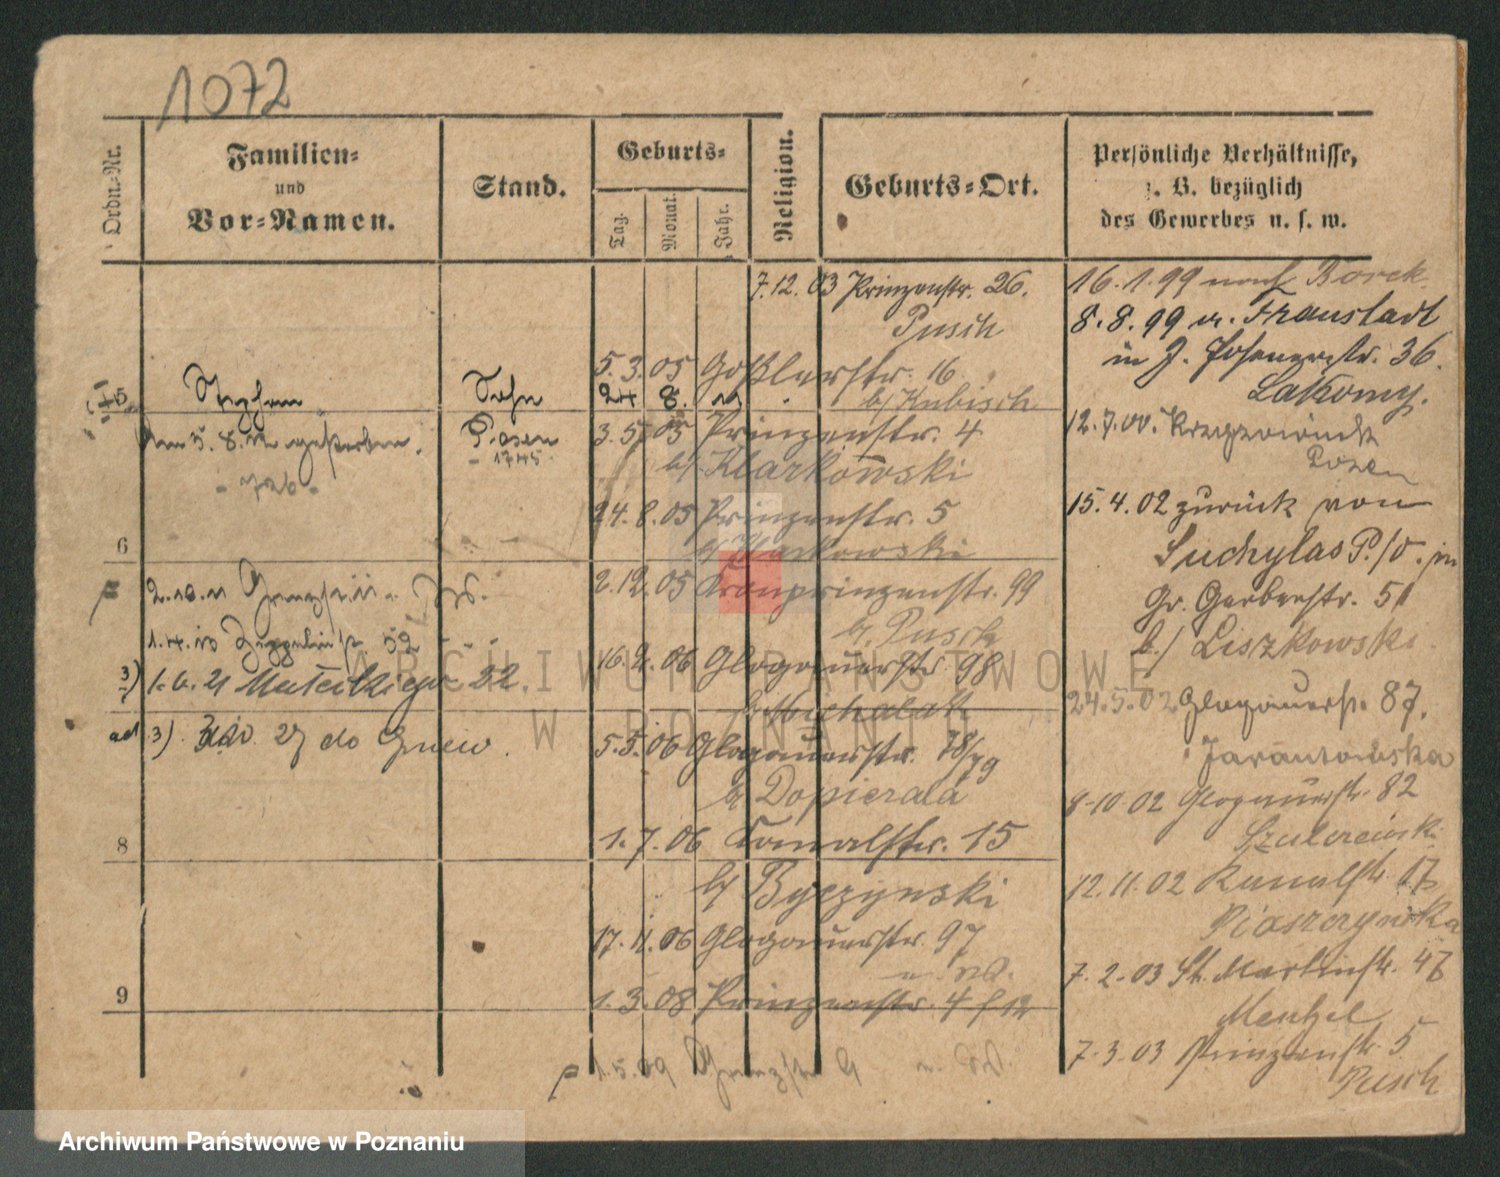 1072
Ordn.-Nr.
Familien=
und
Vor=Namen.
Stand.
Geburts=
Tag.
Monat.
Jahr.
Religion.
Geburts=Ort.
Persönliche Verhältnisse,
z. B. bezüglich
des Gewerbes u. s. w.
Stephan Sohn 24 8.
Am 5. 8. gestorben. Posen
- 1745 -
- 726 -
6
2.10.11
1.4.13 Zeppelinstr. 52
3) 1.6.21 Mateckiego 22.
ad 3) 27 do Gniew.
8
9
7.12.03 Prinzenstr. 26.
Pusch
5.3.05 Goßlerstr. 16
b/ Kubisch
3.5.05 Prinzenstr. 4
b/ Klarkowski
24.8.05 Prinzenstr. 5
b/ Klarkowski
2.12.05 Kronprinzenstr. 99
b. Pusch
16.2.06 Glogauerstr. 98
b. Michalak
5.5.06 Glogauerstr. 78/79
b. Dopierala
1.7.06 Kanalstr. 15
b/ Byczynski
17.11.06 Glogauerstr. 97
1.3.08 Prinzenstr. 4
1.5.09 Grenzstr. 9
16.1.99 nach Borek
8.8.99 v. Fraustadt
in J. Posenerstr. 36.
Lakomy.
12.7.00.
Posen
15.4.02 zurück von
Suchylas P./O. in
Gr. Gerberstr. 51
b./ Liszkowski.
24.5.02 Glogauerstr. 87.
Jarantowska
8.10.02 Glogauerstr. 82
Szulczewski
12.11.02 Kanalstr. 17
Piaszczynska
7.2.03 St. Martinstr. 47
Menzel
7.3.03 Prinzenstr. 5
Pusch
ARCHIWUM PAŃSTWOWE
W POZNANIU
Archiwum Państwowe w Poznaniu